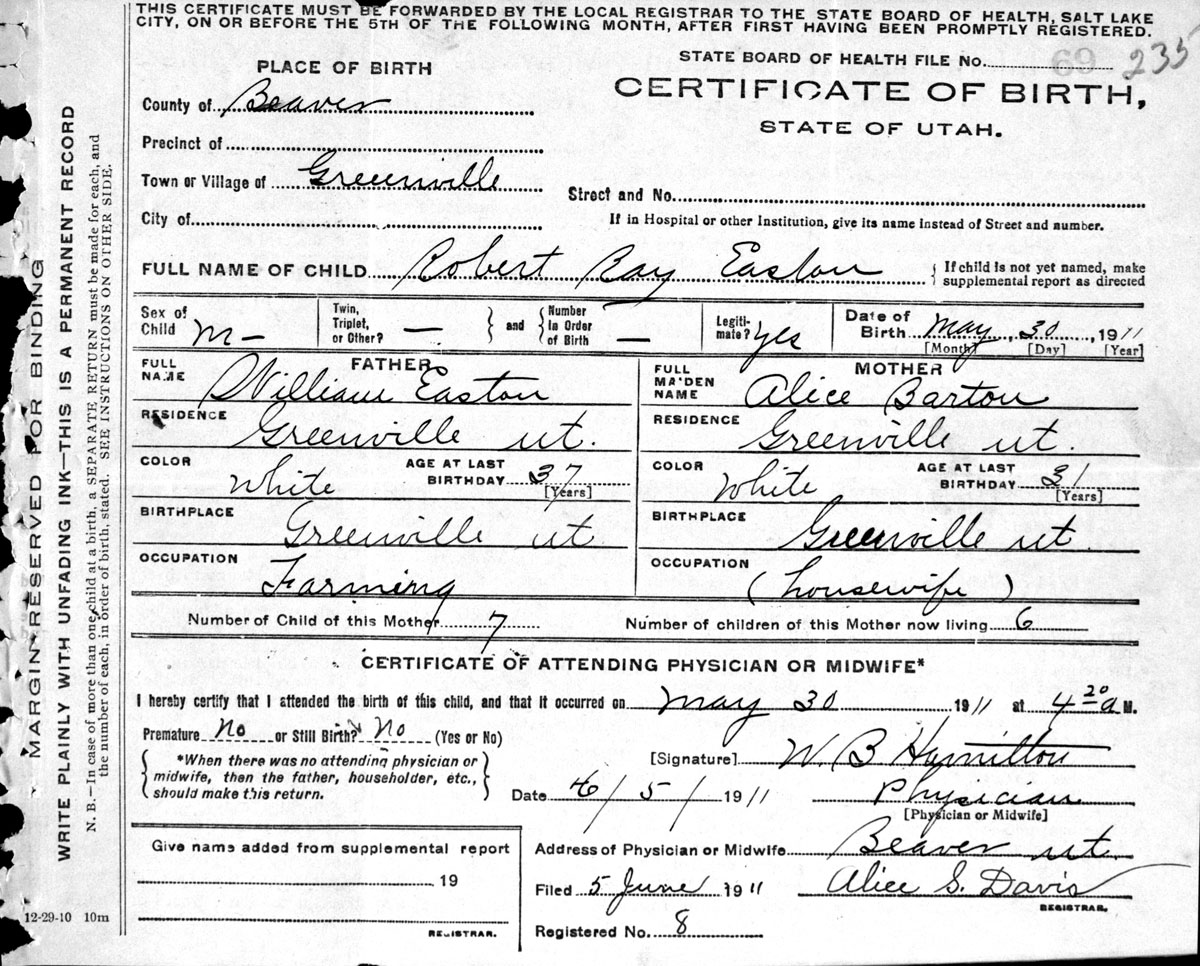 THIS CERTIFICATE MUST BE FORWARDED BY THE LOCAL REGISTRAR TO THE STATE BOARD OF HEALTH, SALT LAKE
CITY, ON OR BEFORE THE 5TH OF THE FOLLOWING MONTH, AFTER FIRST HAVING BEEN PROMPTLY REGISTERED.
STATE BOARD OF HEALTH FILE No. 69 235
PLACE OF BIRTH
CERTIFICATE OF BIRTH,
STATE OF UTAH.
County of Beaver
Precinct of
Town or Village of Greenville
Street and No.
City of
If in Hospital or other Institution, give its name instead of Street and number.
FULL NAME OF CHILD Robert Ray Easton
If child is not yet named, make
supplemental report as directed
Sex of Child M-
Twin, Triplet, or Other? —
and
Number in Order of Birth —
Legitimate? yes
Date of Birth May 30, 1911
[Month] [Day] [Year]
FATHER
FULL NAME William Easton
RESIDENCE Greenville ut.
COLOR White
AGE AT LAST BIRTHDAY 37
[Years]
BIRTHPLACE Greenville ut
OCCUPATION Farming
MOTHER
FULL MAIDEN NAME Alice Barton
RESIDENCE Greenville ut.
COLOR White
AGE AT LAST BIRTHDAY 31
[Years]
BIRTHPLACE Greenville ut.
OCCUPATION (housewife)
Number of Child of this Mother 7
Number of children of this Mother now living 6
CERTIFICATE OF ATTENDING PHYSICIAN OR MIDWIFE*
I hereby certify that I attended the birth of this child, and that it occurred on May 30 1911 at 4 20 a M.
Premature No or Still Birth? No (Yes or No)
*When there was no attending physician or
midwife, then the father, householder, etc.,
should make this return.
[Signature] W. B Hamilton
Date 6/5/1911
Physician
[Physician or Midwife]
Give name added from supplemental report
19
REGISTRAR.
Address of Physician or Midwife Beaver ut.
Filed 5 June 1911
Alice S. Davis
REGISTRAR.
Registered No. 8
MARGIN RESERVED FOR BINDING
WRITE PLAINLY WITH UNFADING INK—THIS IS A PERMANENT RECORD
N. B.—In case of more than one child at a birth, a SEPARATE RETURN must be made for each, and
the number of each, in order of birth, stated. SEE INSTRUCTIONS ON OTHER SIDE.
12-29-10 10m